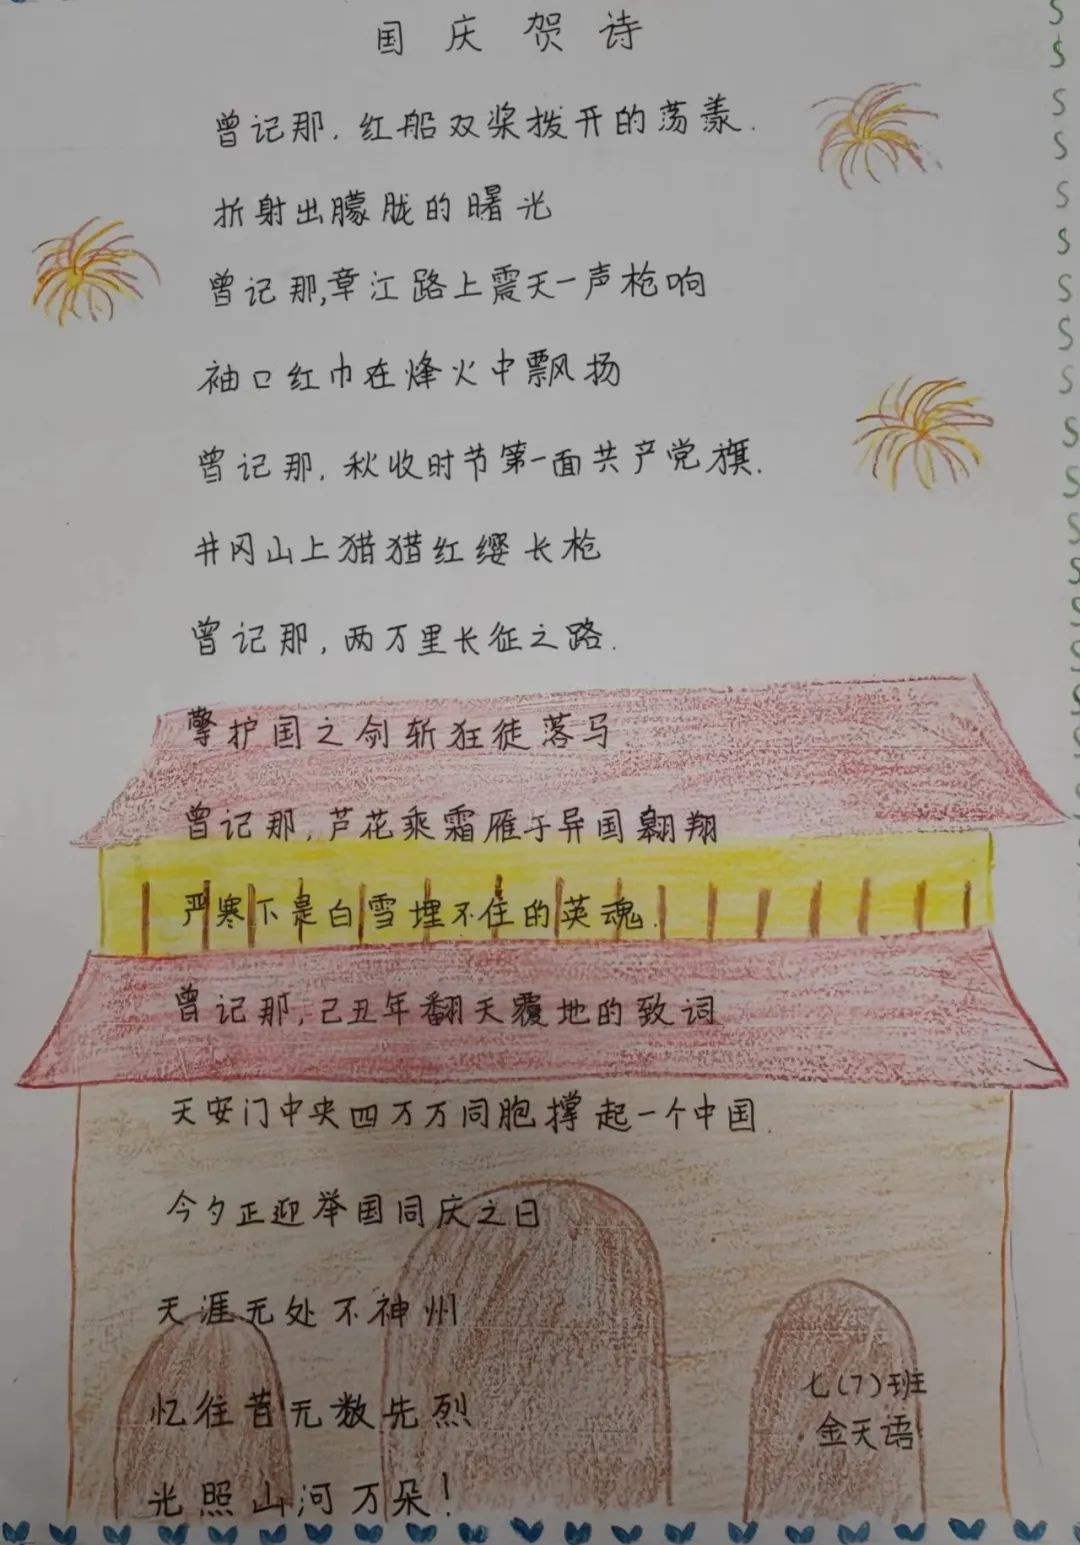 国庆贺诗
曾记那,红船双桨拨开的荡漾.
折射出朦胧的曙光
曾记那,章江路上震天一声枪响
袖口红巾在烽火中飘扬
曾记那,秋收时节第一面共产党旗.
井冈山上猎猎红缨长枪
曾记那,两万里长征之路.
擎护国之剑斩狂徒落马
曾记那,芦花乘霜雁于异国翱翔
严寒下是白雪埋不住的英魂.
曾记那,己丑年翻天覆地的致词
天安门中央四万万同胞撑起一个中国.
今夕正迎举国同庆之日
天涯无处不神州
忆往昔无数先烈
光照山河万朵!
七(7)班
金天语